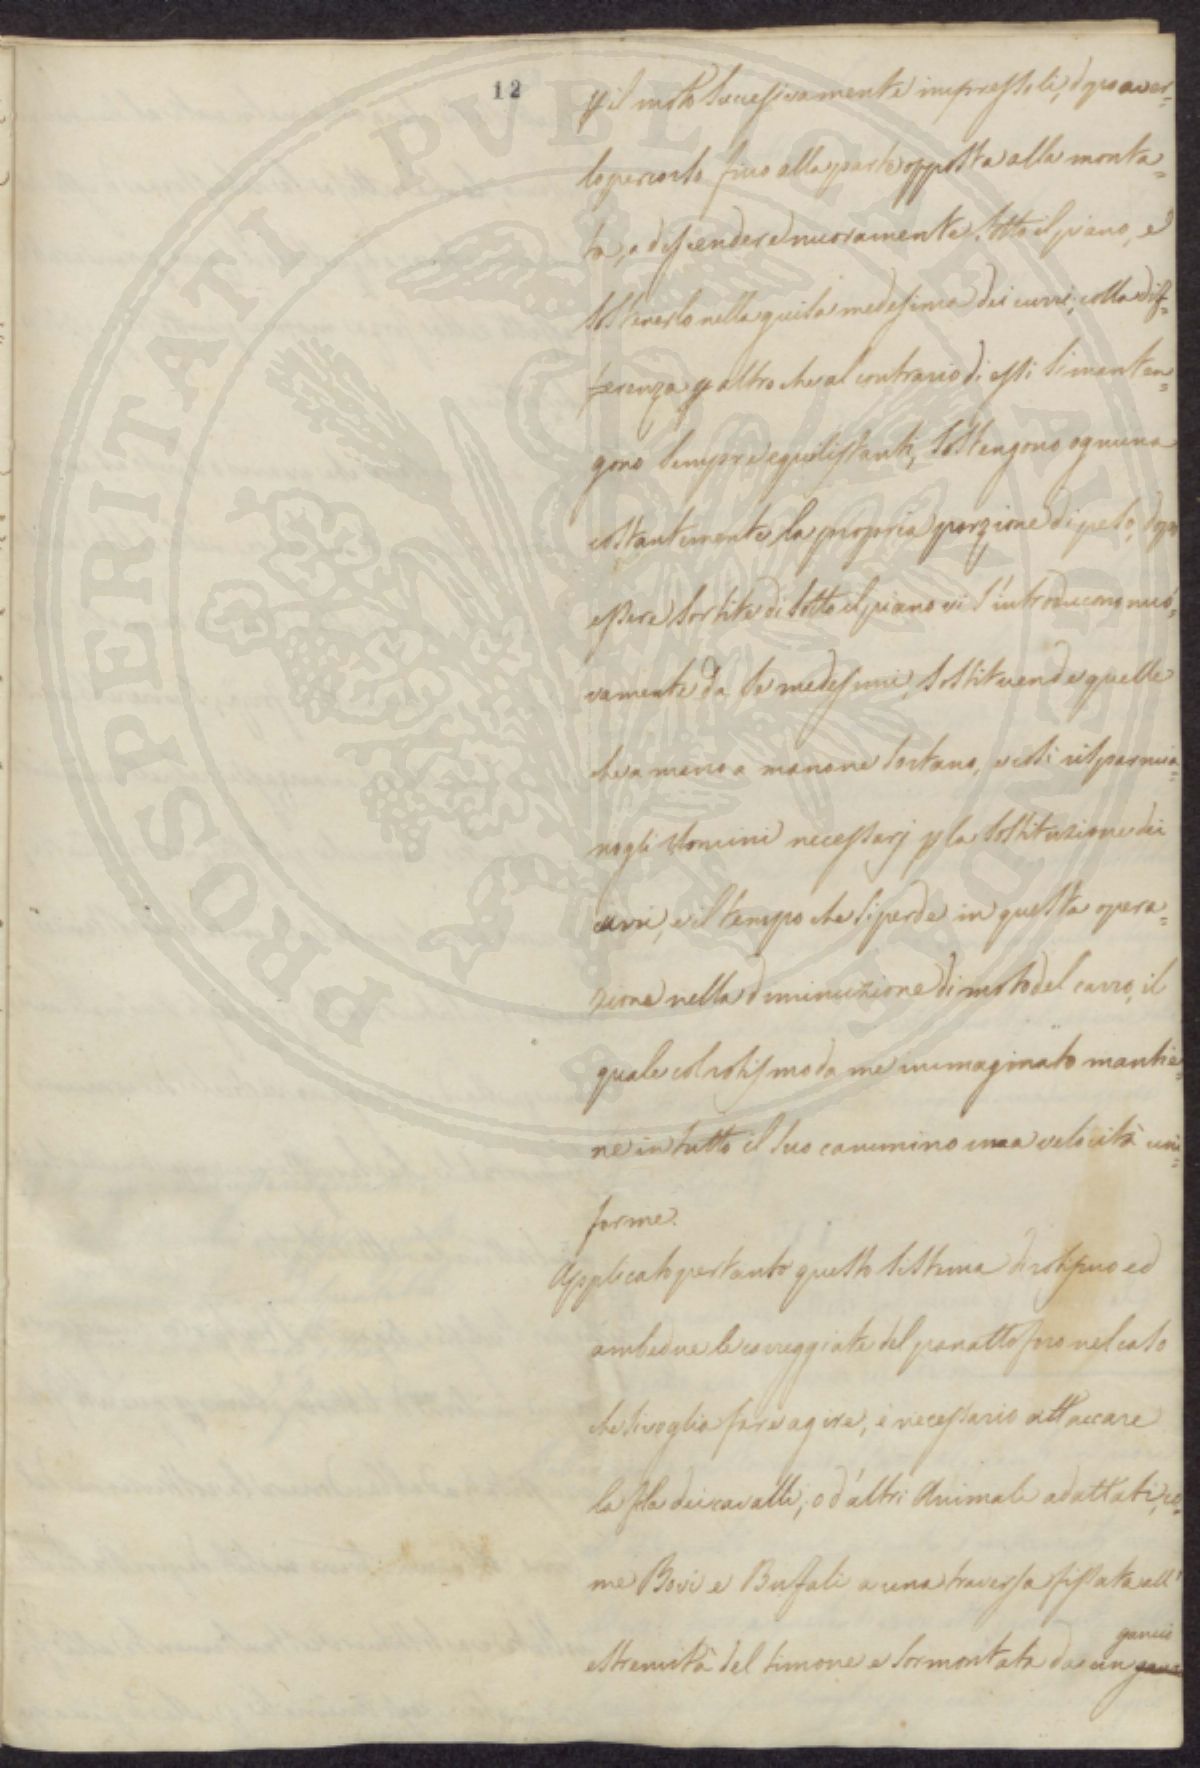 12
PROSPERITATI PVBLICAE AVGENDAE
p il moto successivamente impressoli, dopo aver-
lo percorso fino alla parte opposta alla monta=
ta, a discendere nuovamente sotto il piano, e
sostenerlo nella guisa medesima dei curri, colla dif=
ferenza p altro che al contrario di essi si manten=
gono sempre equidistanti, sostengono ognuna
costantemente la propria porzione di peso, dopo
essere sortite di sotto il piano vi s'introducono nuo=
vamente da se medesime, sostituendo quelle
che a mano a mano ne sortano, e così risparmia=
no gli Uomini necessarj p la sostituzione dei
curri, e il tempo che si perde in questa opera=
zione nella diminuzione di moto del carro, il
quale col rotismo da me immaginato mantie=
ne in tutto il suo cammino una velocità uni=
forme.
Applicato pertanto questo sistema di rotismo ed
ambedue le carreggiate del panattoforo nel caso
che si voglia fare agire, è necessario attaccare
la fila dei cavalli, o d'altri Animali adattati, co=
me Bovi e Bufali a una traversa fissata all'
estremità del timone e sormontata da un ganc
gancio